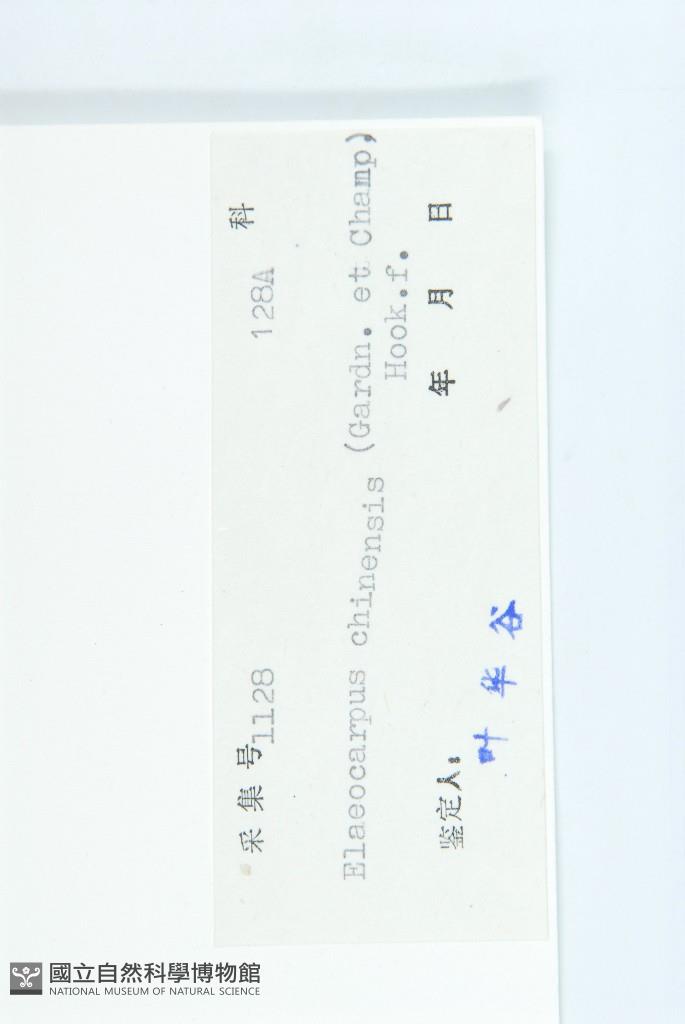 采集号1128 128A 科
Elaeocarpus chinensis (Gardn. et Champ)
Hook.f.
年 月 日
鉴定人: 叶华谷
國立自然科學博物館
NATIONAL MUSEUM OF NATURAL SCIENCE